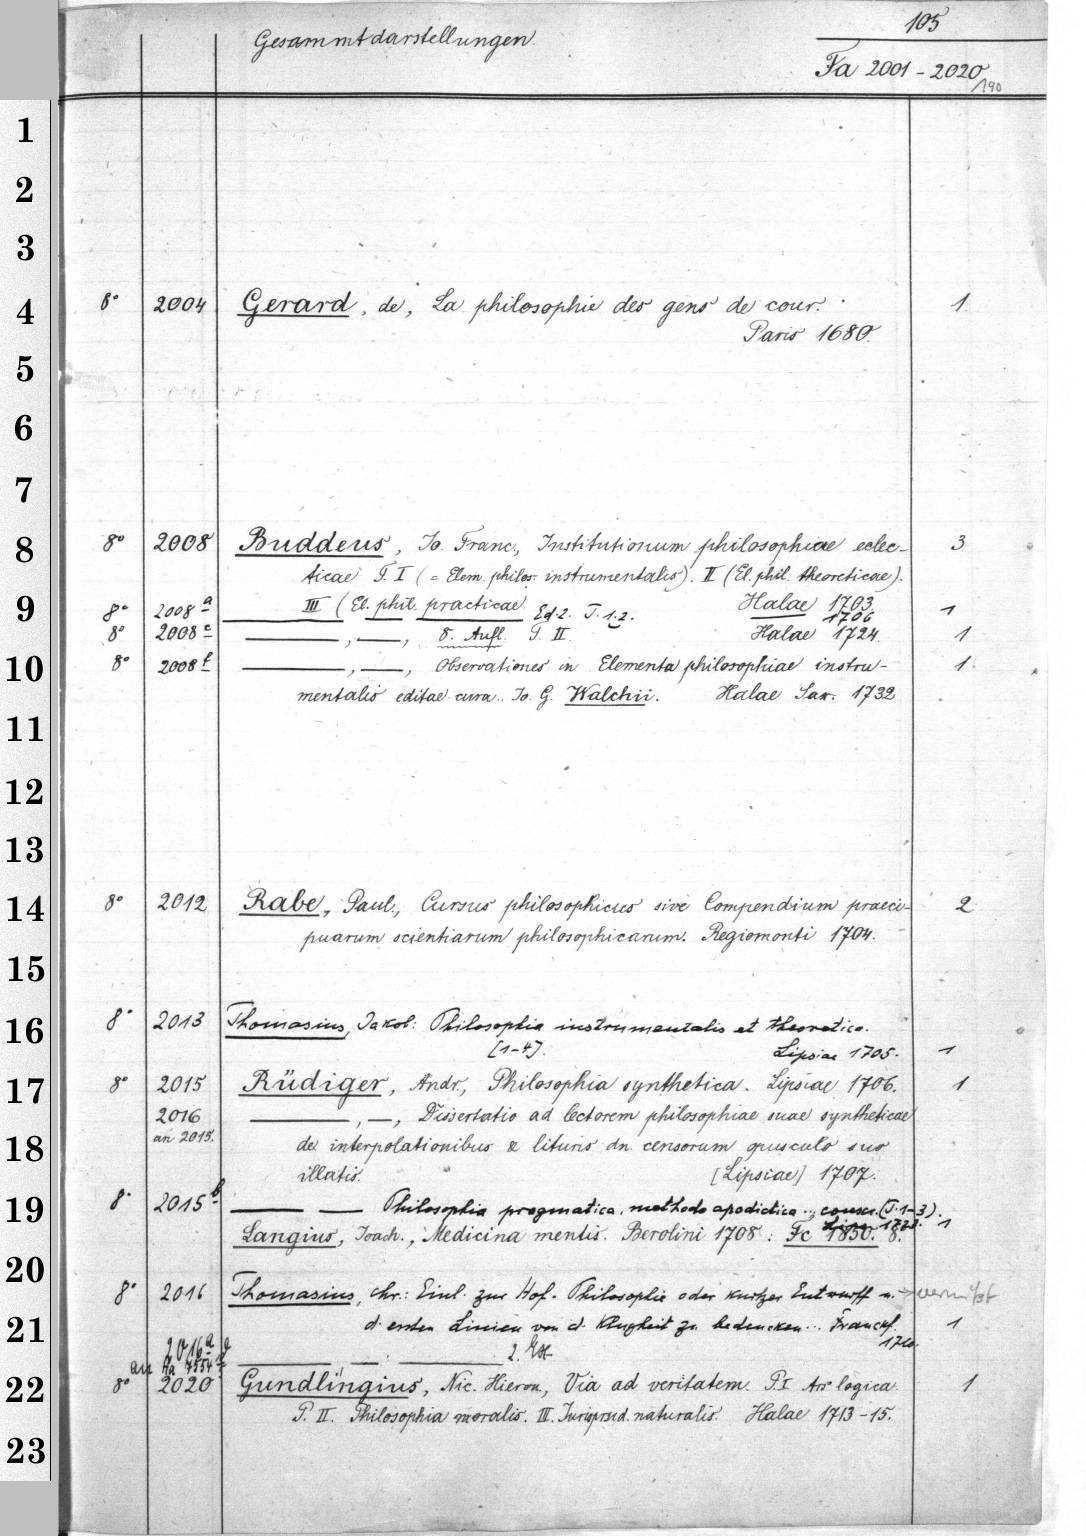 105
Gesammtdarstellungen
Fa 2001 - 2020
/190
1
2
3
4
8° 2004 Gerard, de, La philosophie des gens de cour. 1.
Paris 1680.
5
6
7
8
8° 2008 Buddeus, Jo. Franc., Institutionum philosophiae eclec- 3
ticae T. I (= Elem. philos. instrumentalis). II (El. phil. theoreticae).
9
III (El. phil. practicae Halae 1703.
8° 2008 a Ed. 2. T. 1.2. 1706 1
8° 2008 c ———, ——, 8. Aufl. T. II Halae 1724. 1
10
8° 2008 f ———, ——, Observationes in Elementa philosophiae instru- 1.
mentalis editae cura.. Jo. G. Walchii. Halae Sax. 1732
11
12
13
14
8° 2012 Rabe, Paul., Cursus philosophicus sive Compendium praeci- 2
puarum scientiarum philosophicarum. Regiomonti 1704.
15
16
8° 2013 Thomasius, Jakob: Philosophia instrumentalis et theoretica.
[1-4]. Lipsiae 1705. 1
17
8° 2015 Rüdiger, Andr., Philosophia synthetica. Lipsiae 1706. 1
2016 ———, —, Dissertatio ad lectorem philosophiae suae syntheticae
an 2015.
18
de interpolationibus & lituris dn. censorum opusculo suo
illatis. [Lipsiae] 1707.
19
8° 2015 b ——— —— Philosophia pragmatica, methodo apodictica .., conscr. (T. 1-3).
Lips. 1723. 1
Langius, Joach., Medicina mentis. Berolini 1708: Fc 1850. 8.
20
8° 2016 Thomasius, Chr.: Einl. zur Hof-Philosophie oder kurtzer Entwurff u. → vermißt
21
d. ersten Linien von d. Klugheit zu bedencken... Franckf. 1
1710.
2016 a ——— — ——— 2.
an Ha 4554
22
8° 2020 Gundlingius, Nic. Hieron., Via ad veritatem. P. I Ars logica. 1
P. II. Philosophia moralis. III. Jurisprud. naturalis. Halae 1713-15.
23